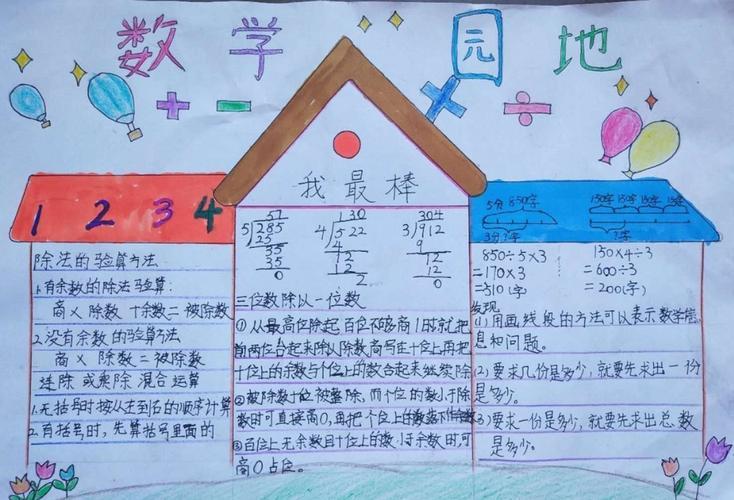 数学园地
+ - × ÷
我最棒
1 2 3 4
除法的验算方法
1.有余数的除法验算:
商×除数+余数=被除数
2.没有余数的验算方法
商×除数=被除数
连除或乘除混合运算
1.无括号时按从左到右的顺序计算
2.有括号时,先算括号里面的
57
5 285
25
35
35
0
130
4 522
4
12
12
2
304
3 912
9
12
12
0
三位数除以一位数
①从最高位除起百位不够商1时就把
前两位合起来除以除数商写在十位上再把
十位上的余数与个位上的数合起来继续除
②被除数十位被整除,而个位的数小于除
数时可直接商0,再把个位上的数落下作余数
③百位上无余数且十位上的数小于余数时,可
商0占位。
5分850字
3分?字
850÷5×3
=170×3
=510(字)
150字 150字 150字 150字
?字
150×4÷3
=600÷3
=200(字)
发现
(1)用画线段的方法可以表示数学信
息和问题。
(2)要求几份是多少,就要先求出一份
是多少。
(3)要求一份是多少,就要先求出总数
是多少。